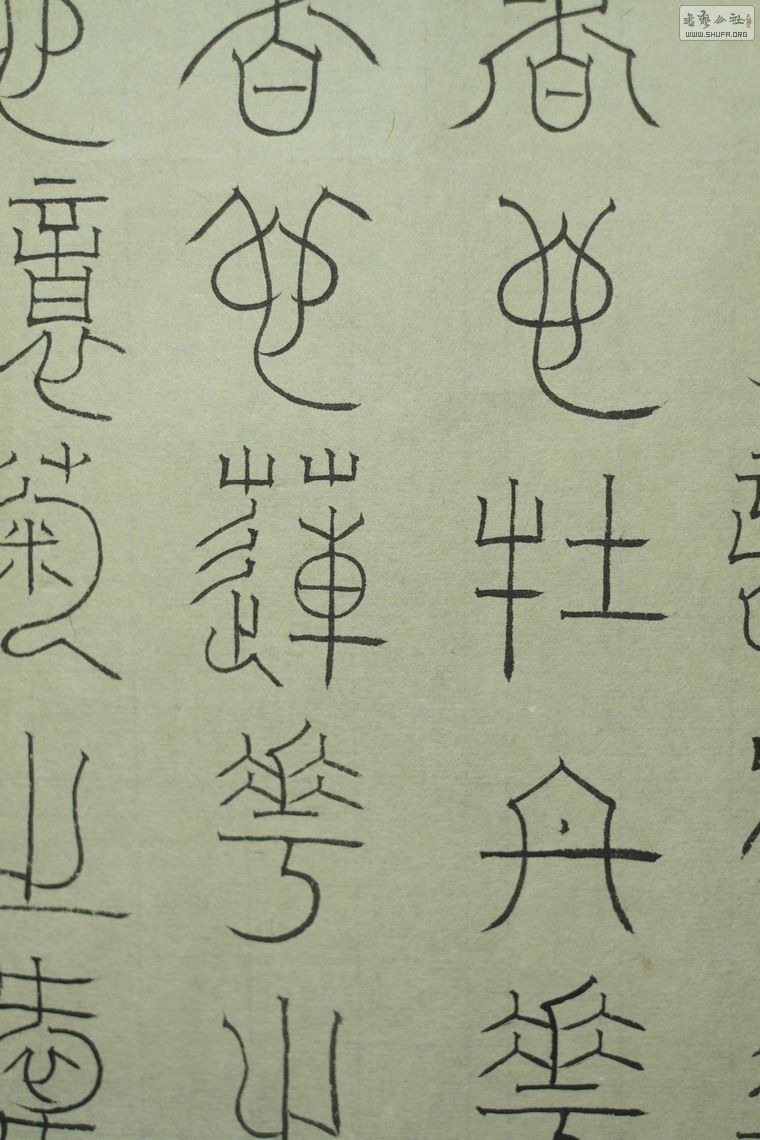 者也牡丹華
者也蓮華之
也意菊之
書藝公社
WWW.SHUFA.ORG